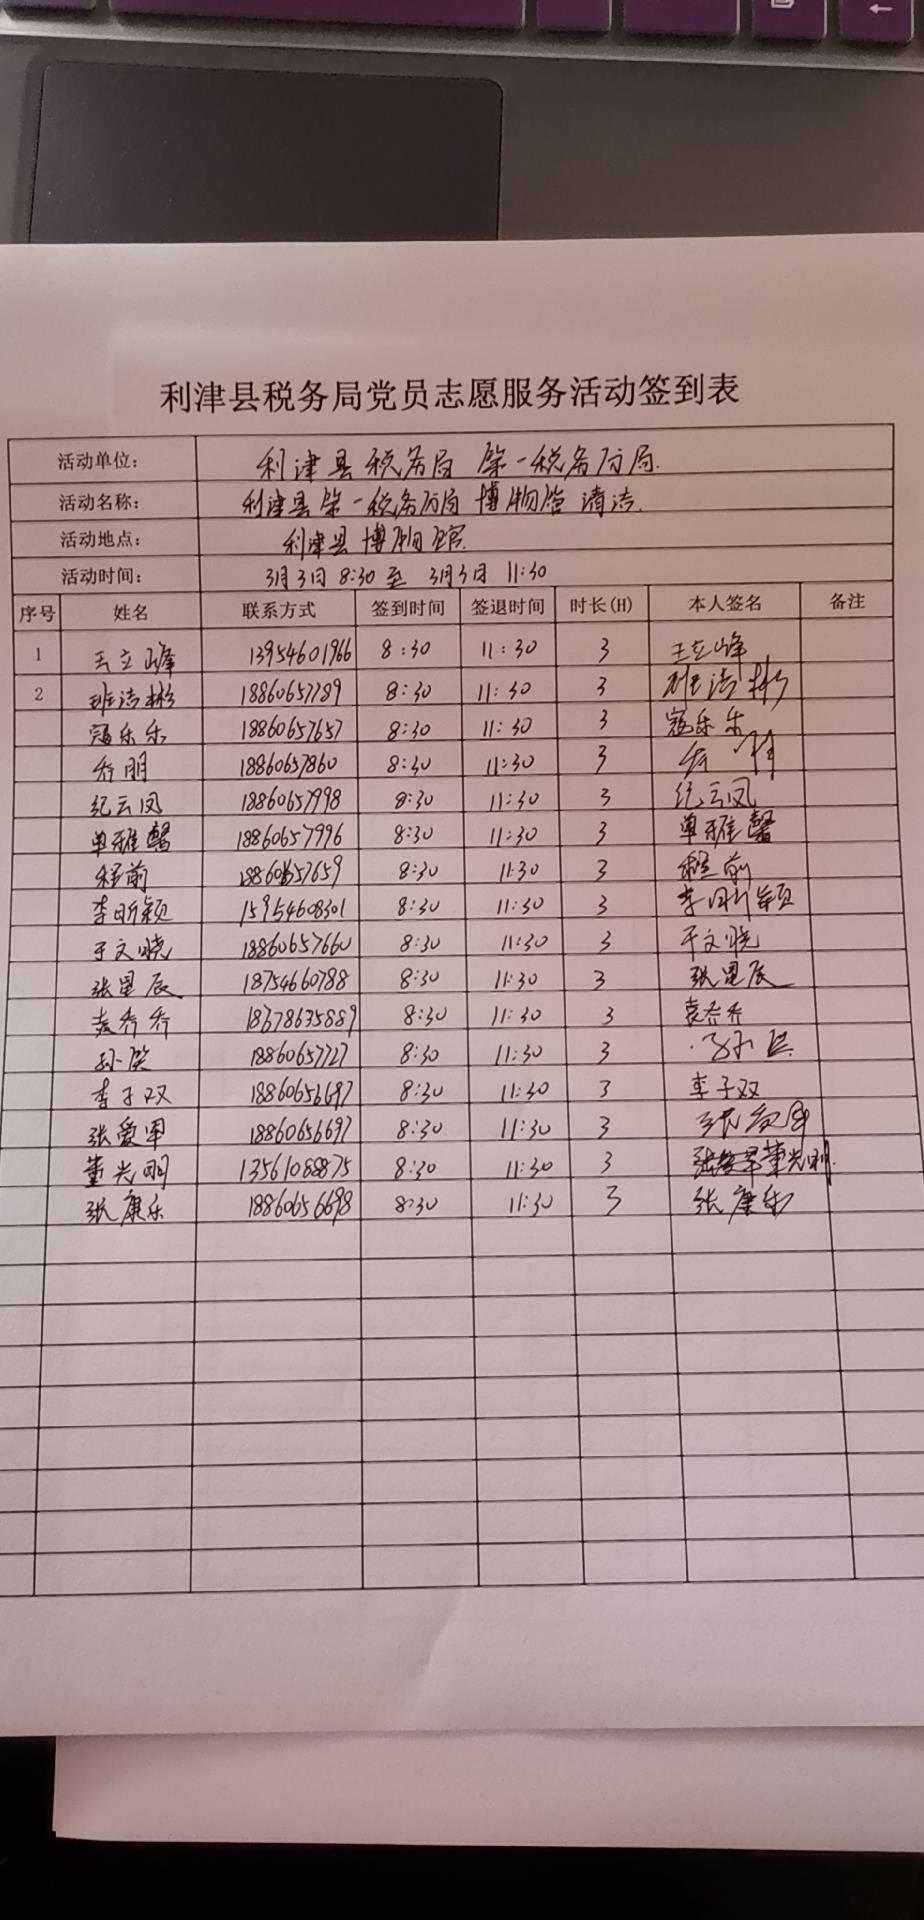 利津县税务局党员志愿服务活动签到表
活动单位: 利津县税务局 第一税务分局.
活动名称: 利津县第一税务分局 博物馆 清洁.
活动地点: 利津县 博物馆
活动时间: 3月3日 8:30 至 3月3日 11:30
序号 姓名 联系方式 签到时间 签退时间 时长(H) 本人签名 备注
1 王立峰 13954601966 8:30 11:30 3 王立峰
2 班洁彬 18860657789 8:30 11:30 3 班洁彬
寇乐乐 18860657657 8:30 11:30 3 寇乐乐
乔朋 18860657860 8:30 11:30 3
纪云凤 18860657998 8:30 11:30 3 纪云凤
单雅馨 18860657996 8:30 11:30 3 单雅馨
程前 18860657659 8:30 11:30 3 程前
李昕颖 15954608301 8:30 11:30 3 李昕颖
于文晓 18860657660 8:30 11:30 3 于文晓
张星辰 18754660788 8:30 11:30 3 张星辰
袁乔乔 18678635889 8:30 11:30 3 袁乔乔
18860657727 8:30 11:30 3
李子双 18860656697 8:30 11:30 3 李子双
张爱军 18860656697 8:30 11:30 3 张爱军
董光明 13561088875 8:30 11:30 3 董光明
张康乐 18860656698 8:30 11:30 3 张康乐